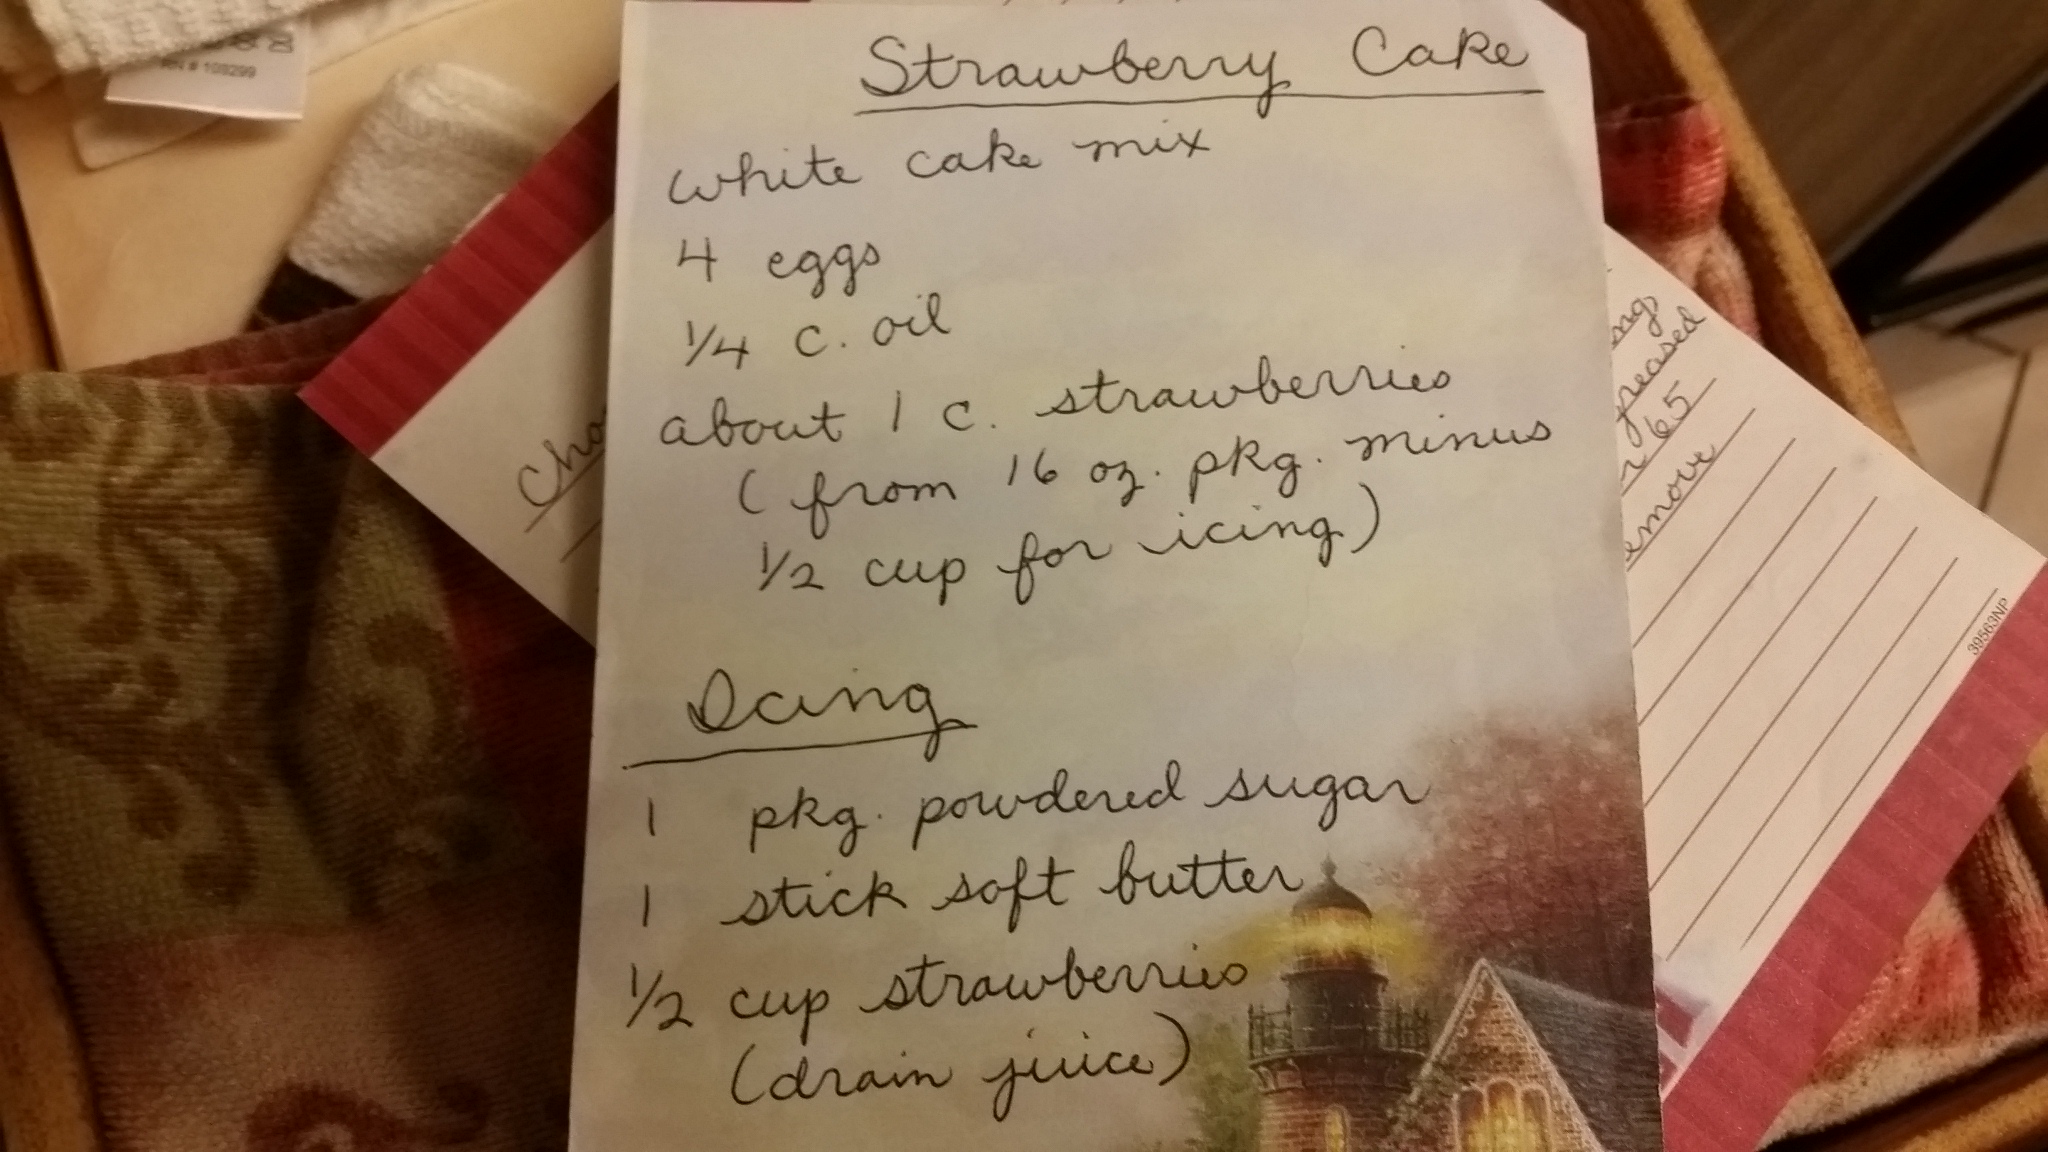 RN # 109299
Strawberry Cake
white cake mix
4 eggs
1/4 c. oil
about 1 c. strawberries
(from 16 oz. pkg. minus
1/2 cup for icing)
Icing
1 pkg. powdered sugar
1 stick soft butter
1/2 cup strawberries
(drain juice)
Cho
greased
65
39563NP